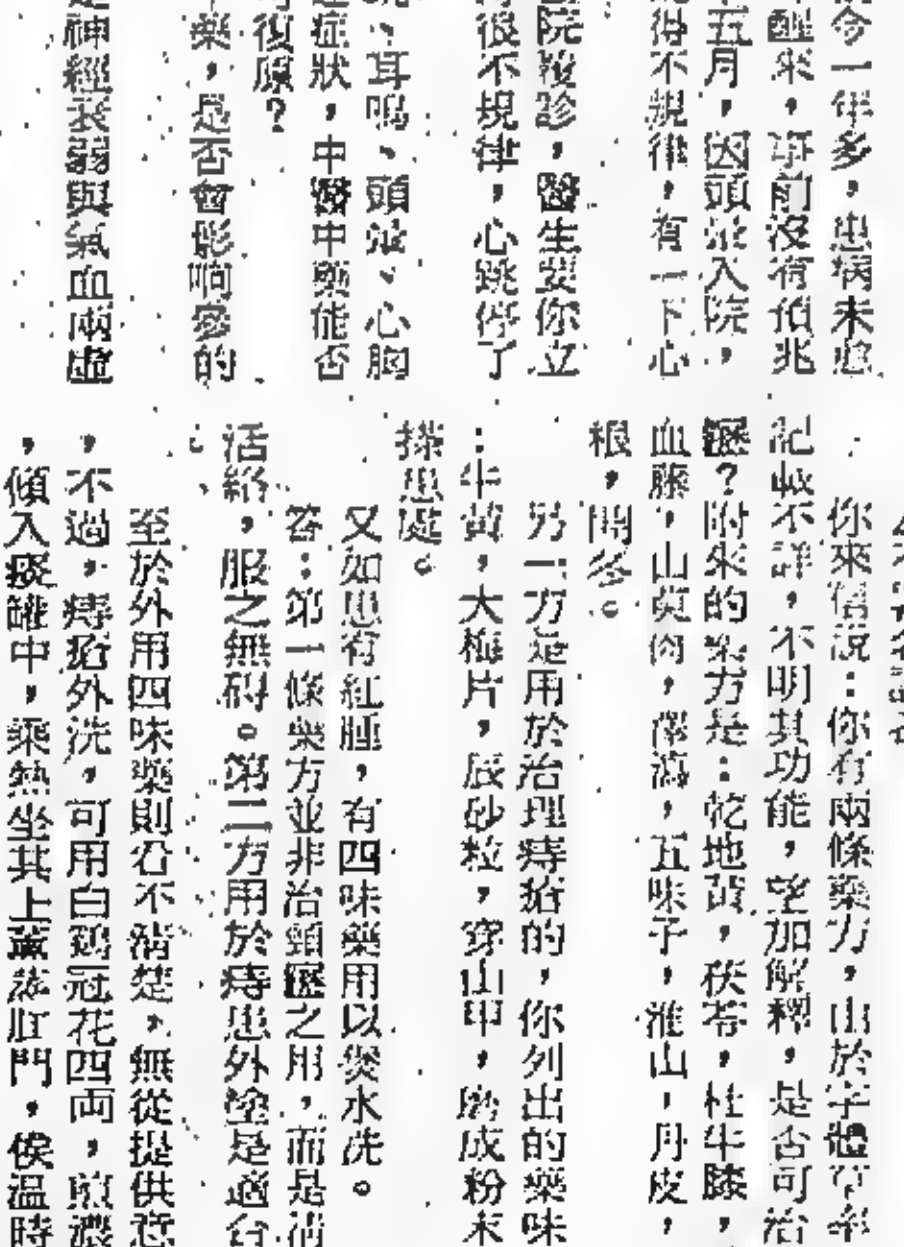 今一年多，患病未愈
醒來，事前沒有預兆
五月，因頭暈入院，
得不規律，有一下心
院複診，醫生要你立
很不規律，心跳停了
、耳鳴、頭暈、心胸
症狀，中醫中藥能否
復原？
藥，是否會影响參的
神經衰弱與氣血兩虛
你來信說：你有兩條藥方，由於字體草率
記載不詳，不明其功能，望加解釋，是否可治
癧？附來的藥方是：乾地黃，茯苓，杜牛膝，
血藤，山萸肉，澤瀉，五味子，淮山，丹皮，
根，開冬。
另一方是用於治理痔瘡的，你列出的藥味
：牛黃，大梅片，辰砂粒，穿山甲，磨成粉末
搽患處。
又如患有紅腫，有四味藥用以煲水洗。
答：第一條藥方並非治頸癧之用，而是清
活絡，服之無碍。第二方用於痔患外塗是適合
。
至於外用四味藥則看不清楚，無從提供意
，不過，痔瘡外洗，可用白鷄冠花四両，煎濃
，傾入痰罐中，乘熱坐其上薰蒸肛門，俟溫時